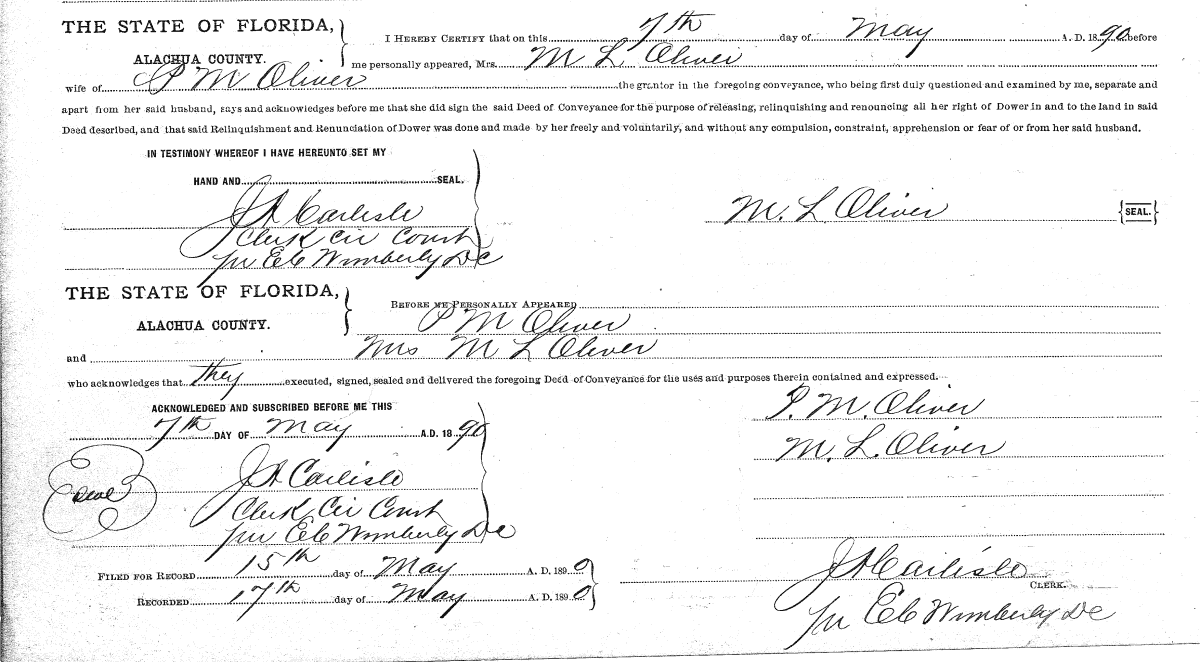 THE STATE OF FLORIDA,
I HEREBY CERTIFY that on this 7th day of May A. D. 1890 before
ALACHUA COUNTY.
me personally appeared, Mrs. M L Oliver
wife of P M Oliver the grantor in the foregoing conveyance, who being first duly questioned and examined by me, separate and
apart from her said husband, says and acknowledges before me that she did sign the said Deed of Conveyance for the purpose of releasing, relinquishing and renouncing all her right of Dower in and to the land in said
Deed described, and that said Relinquishment and Renunciation of Dower was done and made by her freely and voluntarily, and without any compulsion, constraint, apprehension or fear of or from her said husband.
IN TESTIMONY WHEREOF I HAVE HEREUNTO SET MY
HAND AND SEAL.
J A Carlisle
M. L Oliver {SEAL.}
Clerk Cir Court
pr E C Wimberly DC
THE STATE OF FLORIDA,
BEFORE ME PERSONALLY APPEARED
ALACHUA COUNTY.
P M Oliver
and Mrs M L Oliver
who acknowledges that they executed, signed, sealed and delivered the foregoing Deed of Conveyance for the uses and purposes therein contained and expressed.
ACKNOWLEDGED AND SUBSCRIBED BEFORE ME THIS
P. M. Oliver
7th DAY OF May A.D. 1890
M. L. Oliver
J A Carlisle
Seal
Clerk Cir Court
pr E C Wimberly DC
FILED FOR RECORD 15th day of May A. D. 1890
J A Carlisle CLERK.
RECORDED 17th day of May A. D. 1890
pr E C Wimberly DC